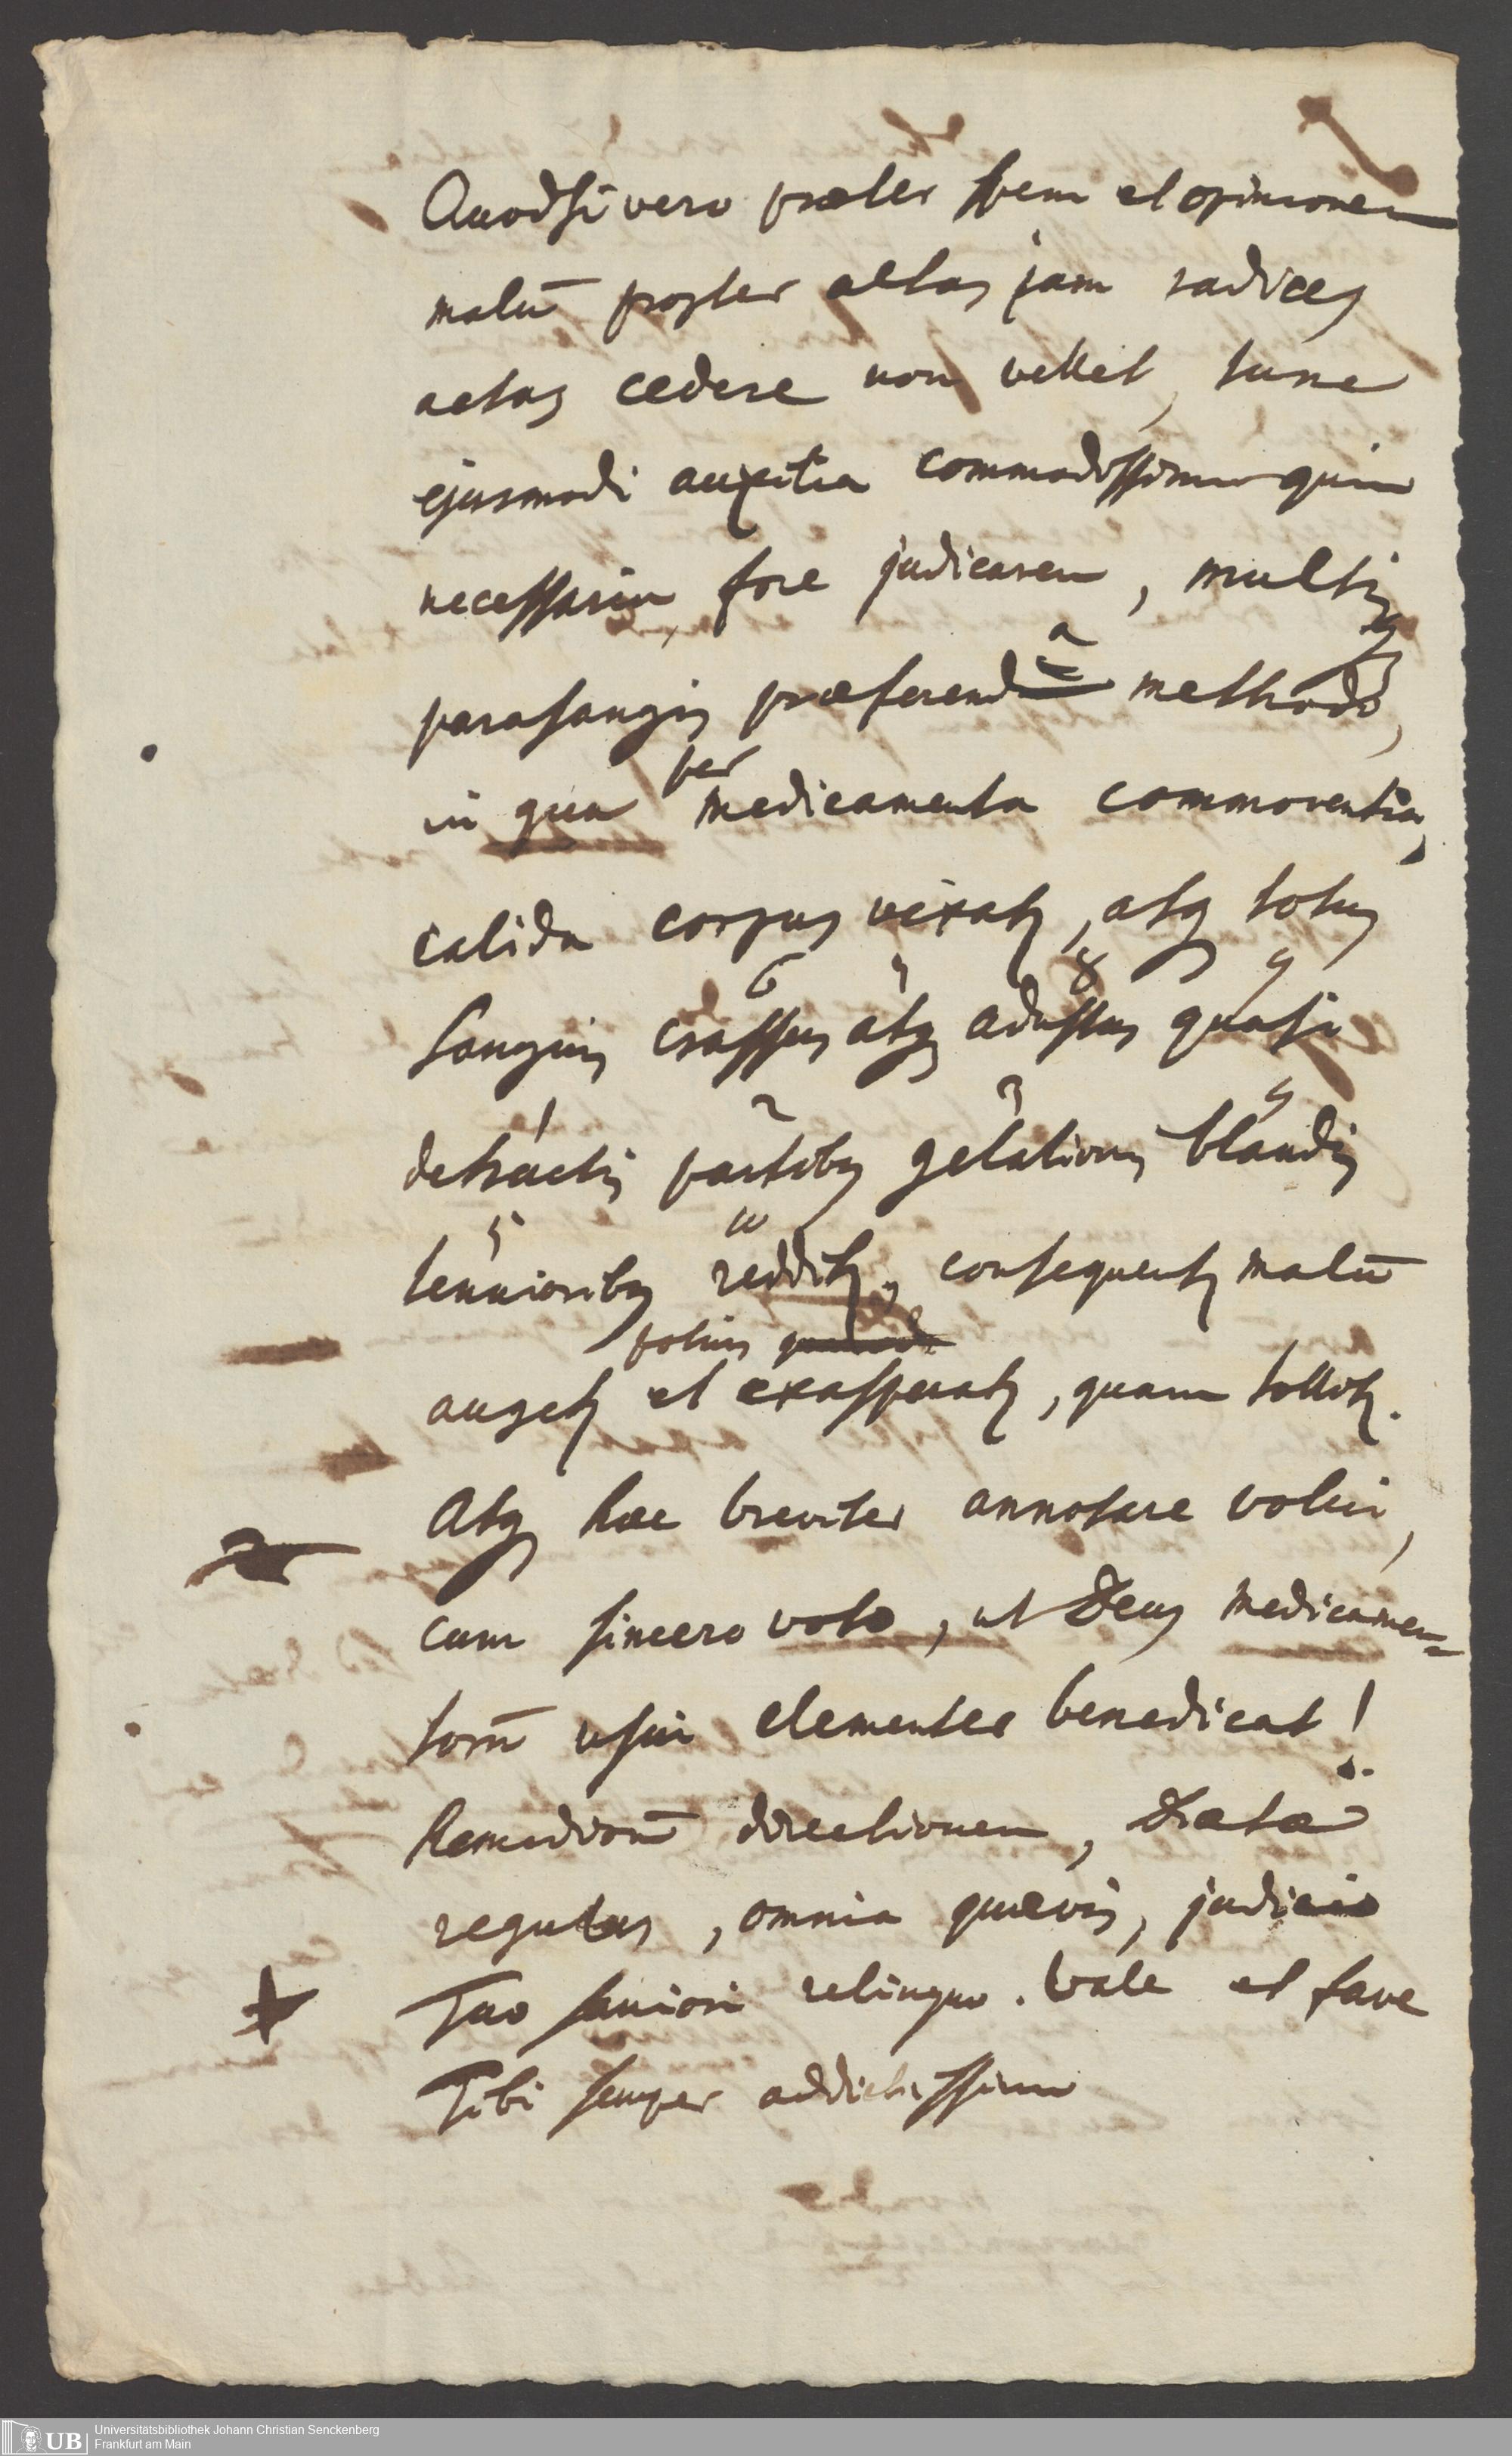 Quodsi vero præter spem et opinionem
malū propter altas jam radices
actas cedere non vellet, tunc
ejusmodi auxilia commodissima quin
necessaria fore judicarem, multis
a
parasangis præferenda methodo,
per
in qua medicamenta commoventia,
calida corpus vexatur, atq totus
6 7 8 9
sanguis crassus atq adustus quasi
1 2 3 4
detractis partibus gelatinosis blandis
5 10
tenuioribus redditur, consequenter malū
potius
augetur et exasperatur, quam tollitur.
Atq hæc breviter annotare volui,
cum sincero voto, ut Deus medicamen=
torū usui clementer benedicat!
Remediorū directionem, Diæta
regulas, omnia quævis, judicio
Tuo saniori relinquo. Vale et fave
Tibi semper addictissimo
Universitätsbibliothek Johann Christian Senckenberg
Frankfurt am Main
UB